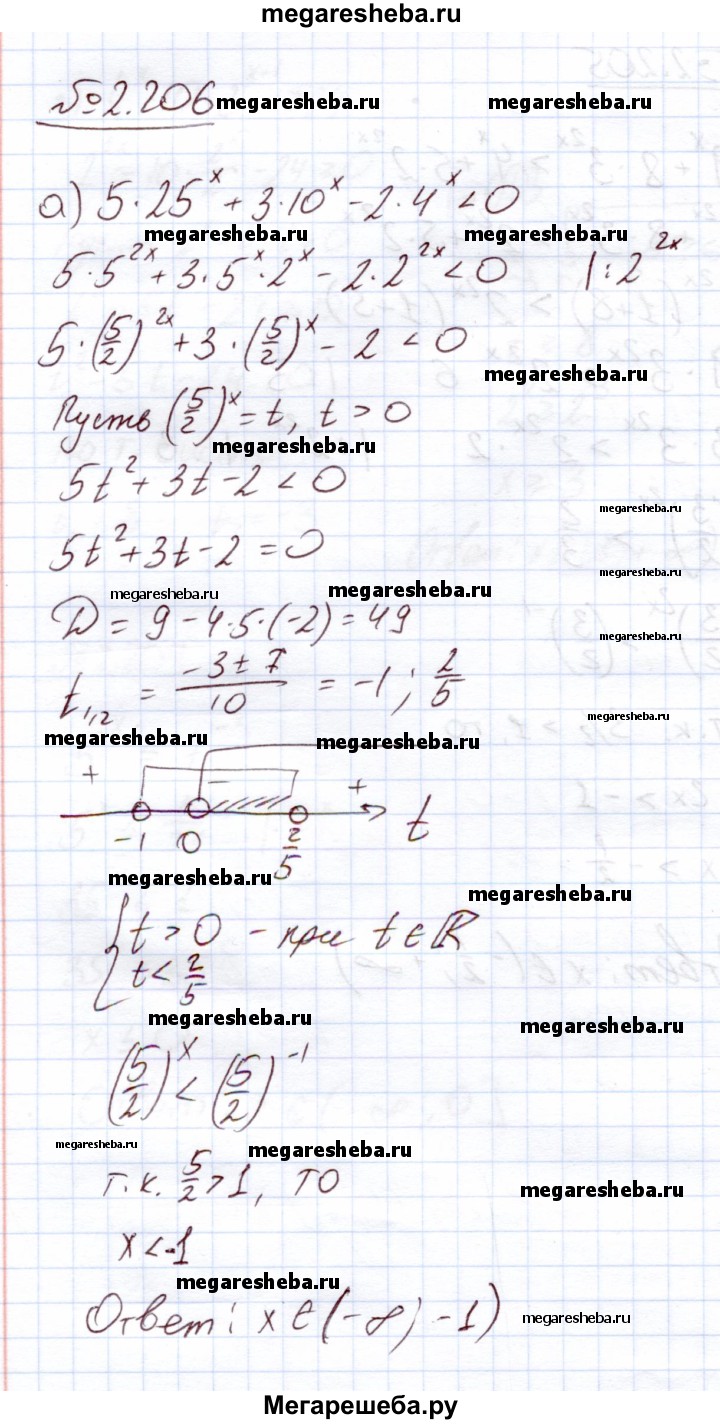 megaresheba.ru
№2.206 megaresheba.ru megaresheba.ru
а) 5·25^x + 3·10^x - 2·4^x < 0
megaresheba.ru megaresheba.ru
5·5^{2x} + 3·5^x·2^x - 2·2^{2x} < 0 |:2^{2x}
5·(5/2)^{2x} + 3·(5/2)^x - 2 < 0
megaresheba.ru
Пусть (5/2)^x = t, t > 0
megaresheba.ru
5t^2 + 3t - 2 < 0
megaresheba.ru
5t^2 + 3t - 2 = 0
megaresheba.ru
megaresheba.ru megaresheba.ru
D = 9 - 4·5·(-2) = 49
megaresheba.ru
t_{1,2} = (-3 ± 7)/10 = -1; 2/5
megaresheba.ru
megaresheba.ru megaresheba.ru
+ - +
-1 0 2/5 t
megaresheba.ru megaresheba.ru
{ t > 0 - при t ∈ R
t < 2/5
megaresheba.ru megaresheba.ru
(5/2)^x < (5/2)^{-1}
megaresheba.ru megaresheba.ru
т.к. 5/2 > 1, то
megaresheba.ru
x < -1
megaresheba.ru
Ответ: x ∈ (-∞; -1) megaresheba.ru
Мегарешеба.ру